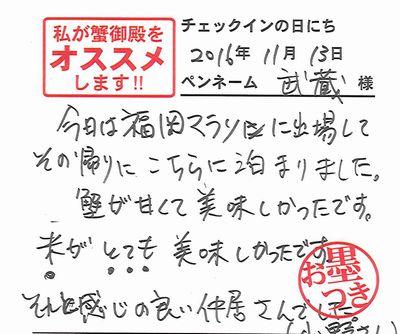 私が蟹御殿を
オススメ
します!!
チェックインの日にち
2016年 11月 13日
ペンネーム 武蔵 様
今日は福岡マラソンに出場して
その帰りにこちらに泊まりました。
蟹が甘くて美味しかったです。
米がとても美味しかったです。
お墨つき
それと感じの良い仲居さんでした。